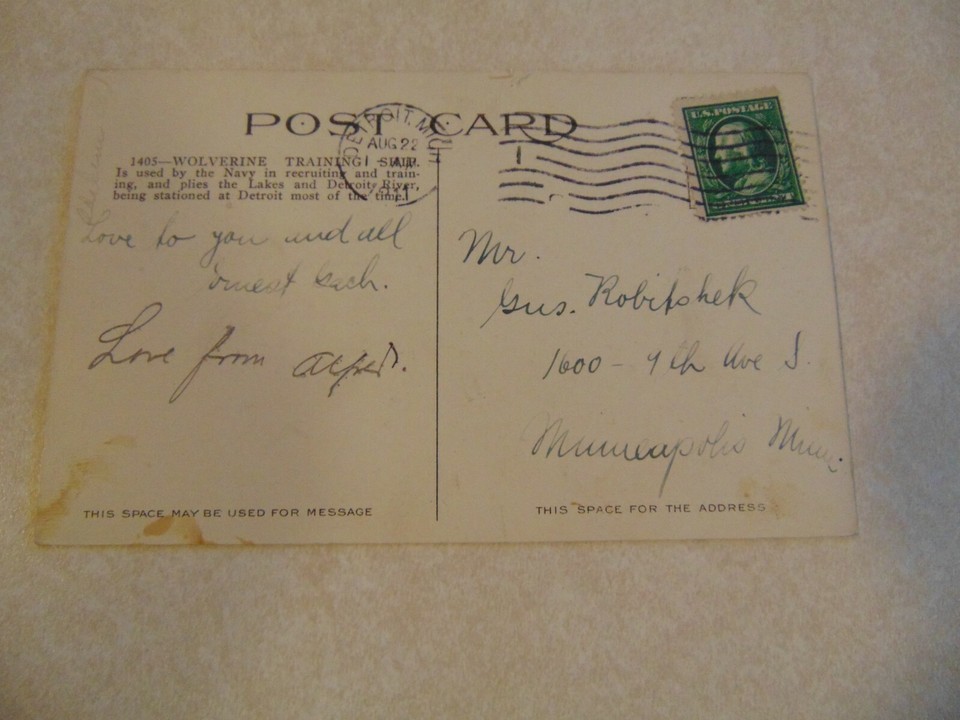 POST CARD
DETROIT, MICH
AUG 22
1405—WOLVERINE TRAINING SHIP.
Is used by the Navy in recruiting and train-
ing, and plies the Lakes and Detroit River,
being stationed at Detroit most of the time.
U.S. POSTAGE
Love to you and all
Love from
Mr.
Gus. Robitshek
1600 - 9th Ave S.
Minneapolis Minn.
THIS SPACE MAY BE USED FOR MESSAGE
THIS SPACE FOR THE ADDRESS